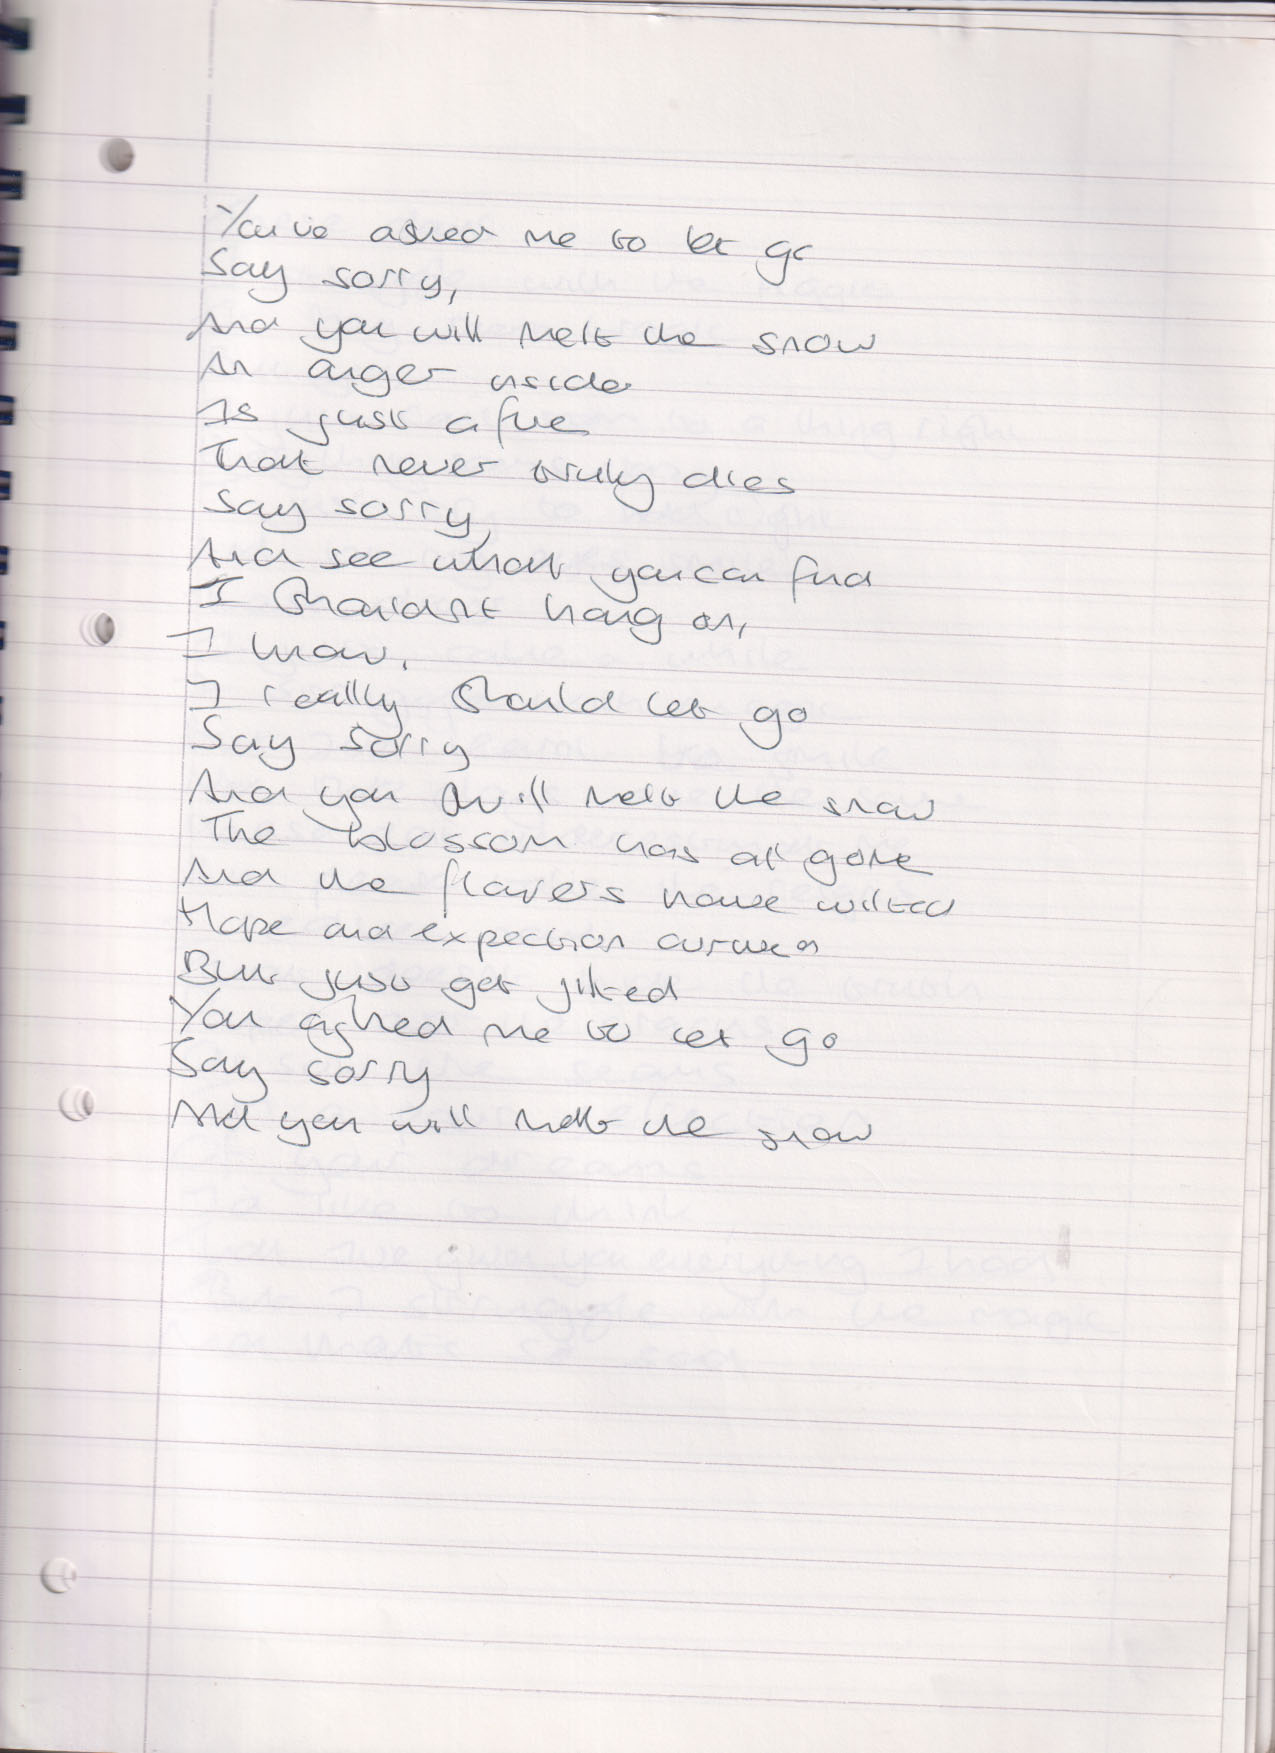 You've asked me to let go
Say sorry,
And you will melt the snow
An anger inside
Is just a fire
That never truly dies
Say sorry,
And see what you can find
I shouldn't hang on,
I know,
I really should let go
Say sorry
And you will melt the snow
The blossom has all gone
And the flowers have wilted
Hope and expection
But just get jilted
You asked me to let go
Say sorry
And you will melt the snow